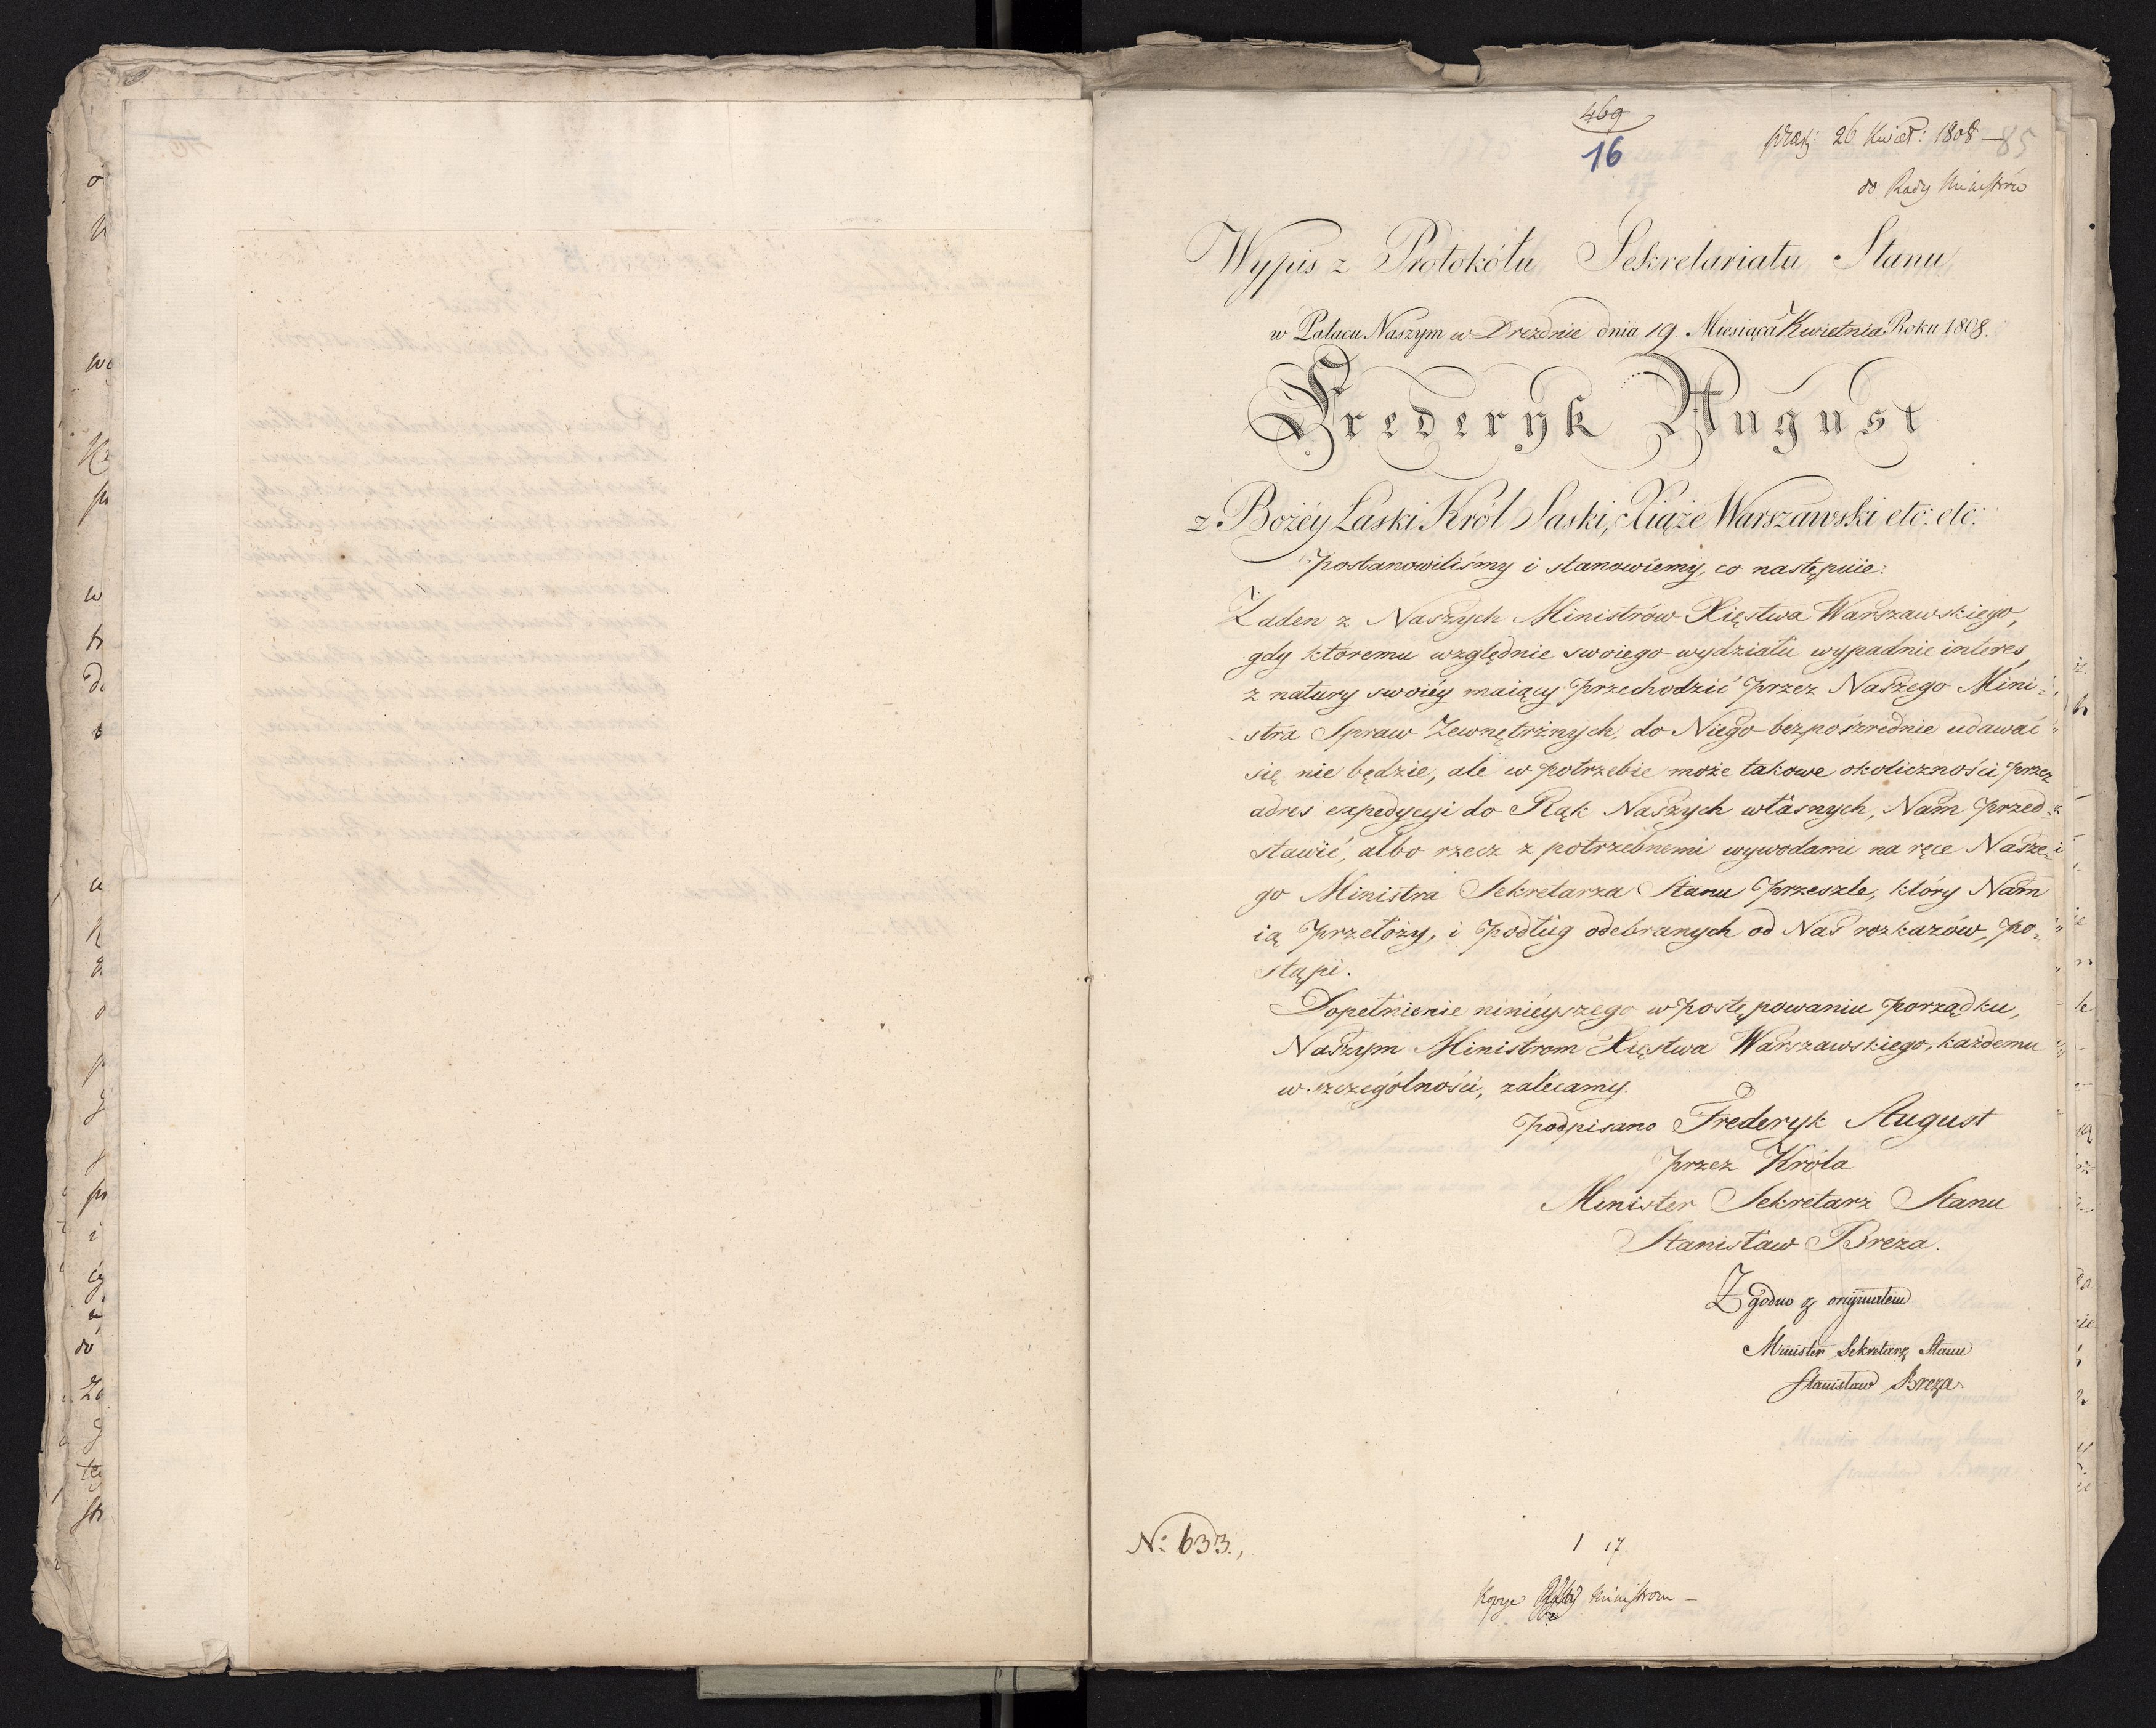 469
16
praes: 26 Kwiet: 1808 —
85
do Rady Ministrów
Wypis z Protokółu Sekretariatu Stanu
w Palacu Naszym w Drezdnie dnia 19. Miesiąca Kwietnia Roku 1808.
Frederyk August
z Bożéy Laski Król Saski, Xiąże Warszawski etc: etc:
postanowiliśmy i stanowiemy, co następuie:
Żaden z Naszych Ministrów Xięstwa Warszawskiego,
gdy któremu względnie swoiego wydziału wypadnie interes
z natury swoiéy maiący przechodzić przez Naszego Mini-
-stra Spraw Zewnętrznych, do Niego bezpośrzednie udawać
się nie będzie, ale w potrzebie może takowe okoliczności przez
adres expedycyi do Rąk Naszych własnych, Nam przed-
stawić, albo rzecz z potrzebnemi wywodami na ręce Nasze-
go Ministra Sekretarza Stanu przeszle, który Nam
ią przełoży, i podług odebranych od Nas rozkazów, po-
stąpi.
Dopełnienie ninieyszego w postępowaniu porządku,
Naszym Ministrom Xięstwa Warszawskiego, każdemu
w szczególności, zalecamy.
podpisano Frederyk August
przez Króla
Minister Sekretarz Stanu
Stanisław Breza.
Zgodno z originałem
Minister Sekretarz Stanu
Stanisław Breza
No: 633.,
1 17.
Kopye Ministrom —